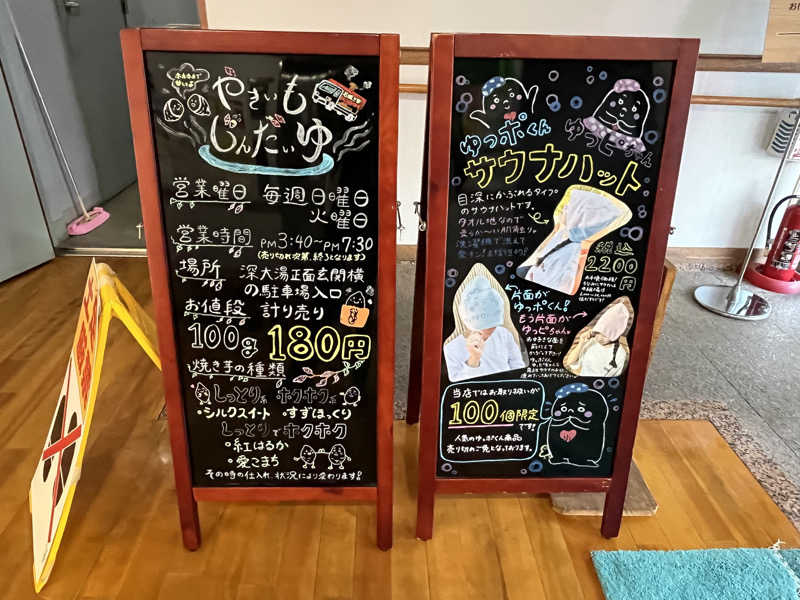 やきいも
じんだいゆ
営業曜日 毎週日曜日
火曜日
営業時間 PM3:40〜PM7:30
(売り切れ次第、終了となります)
場所 深大湯正面玄関横
の駐車場入口
お値段 計り売り
100g 180円
焼き芋の種類
しっとり系 ホクホク系
・シルクスイート ・すずほっくり
しっとりでホクホク
・紅はるか
・愛こまち
その時の仕入れ、状況により変わります!
ゆっポくん
ゆっピちゃん
サウナハット
目深にかぶれるタイプ
のサウナハットです。
タオル地なので
柔らか〜い!
洗濯機で洗えて
税込
2200
円
片面が
ゆっポくん!
もう片面が
ゆっピちゃん。
当店ではお取り扱いが
100個限定
人気のゆっポくん商品
売り切れご免となっております。